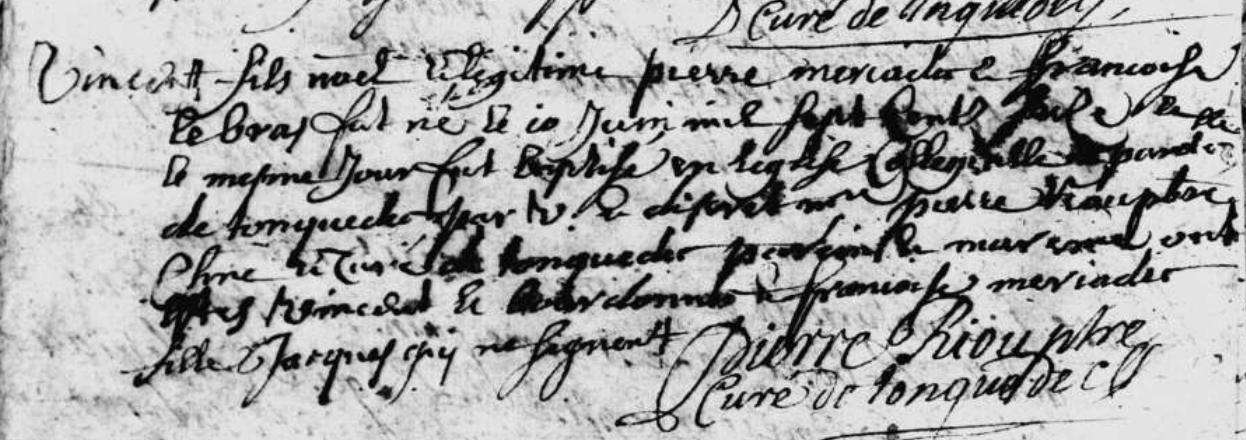 Curé de Tonquedec
Vincent fils nâel & legitime pierre meriadec & francoise
le bras fut né le 10 Juin mil sept cents & le
le mesme Jour fut baptisé en leglise Collegialle &
de tonquedec par v. & discret mre pierre Riou pbre
& Curé de tonquedec parain & maraine ont
estes vincent le bourdonnec & francoise meriadec
fille Jacques qui ne signent
Pierre Riou pbre
Curé de Tonquedec